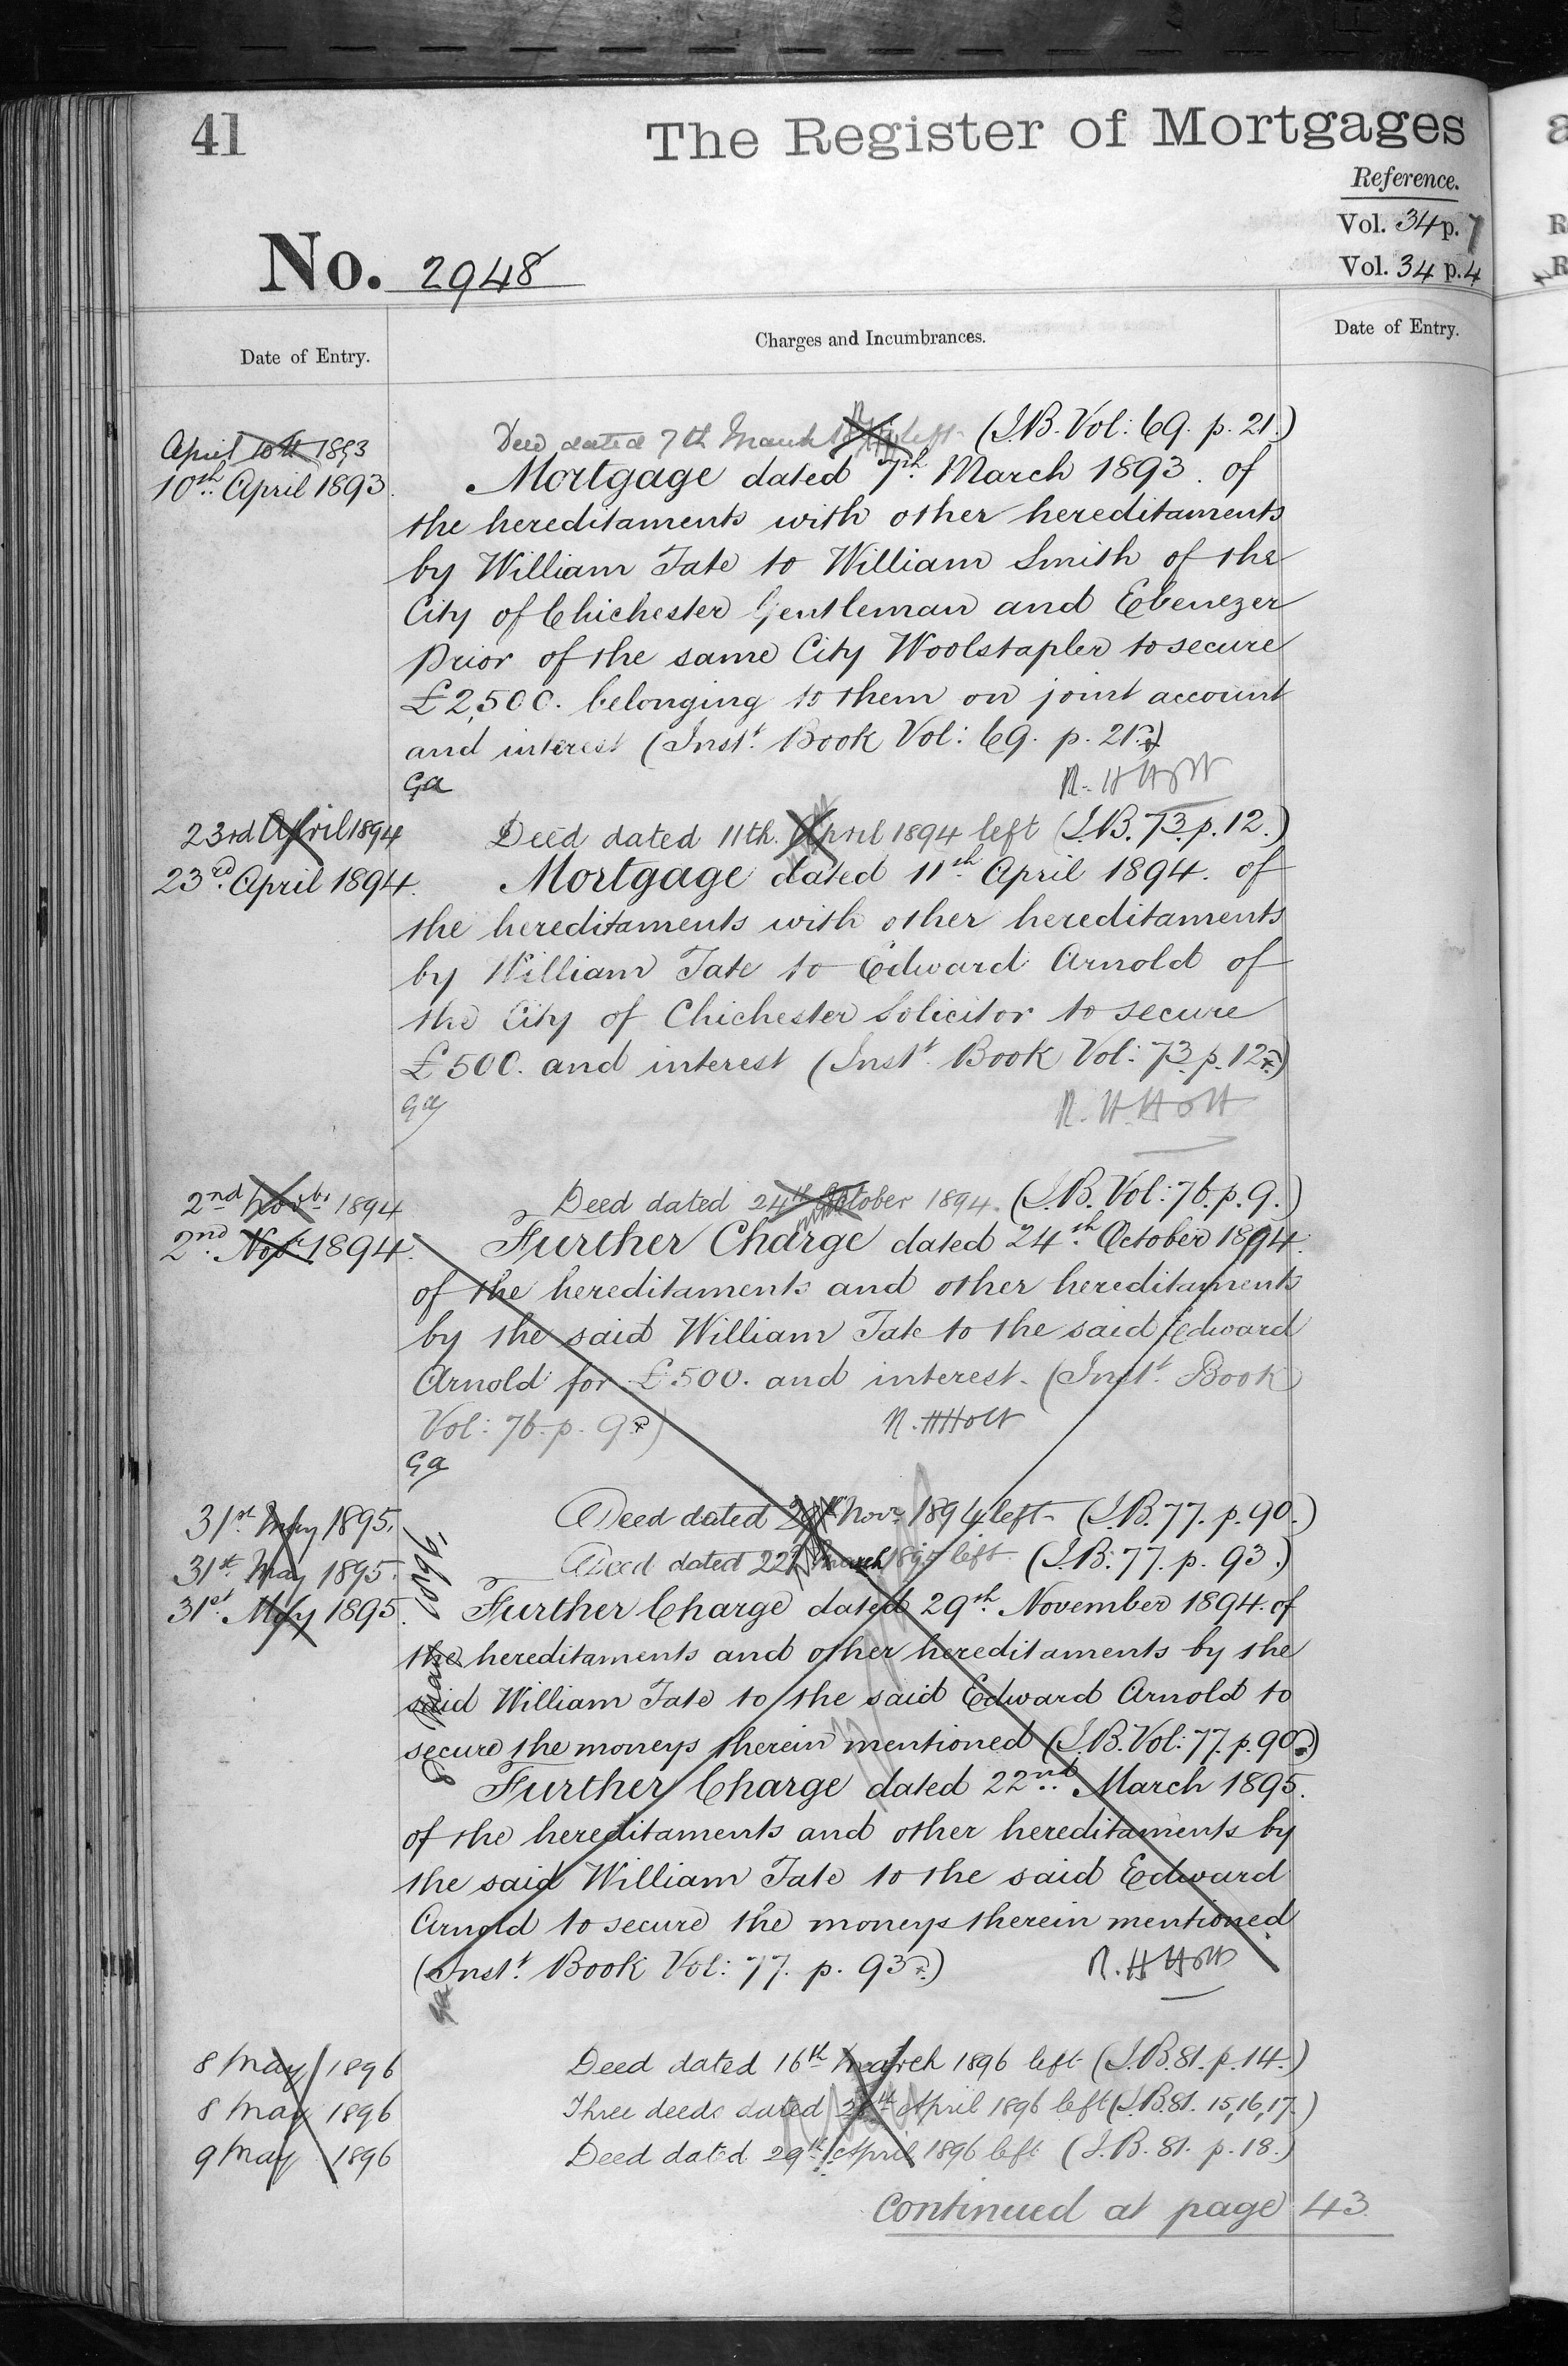 41
The Register of Mortgages
Reference.
Vol. 34 p. 7
Vol. 34 p. 4
No. 2948
Date of Entry.
Charges and Incumbrances.
Date of Entry.
April 10th 1893
Deed dated 7th March left (I.B. Vol: 69. p. 21.)
10th April 1893.
Mortgage dated 7th March 1893. of
the hereditaments with other hereditaments
by William Tate to William Smith of the
City of Chichester Gentleman and Ebenezer
Prior of the same City Woolstapler to secure
£2,500. belonging to them on joint account
and interest (Inst.t Book Vol: 69. p. 21.)
R. H Holt
Ga
23rd April 1894
Deed dated 11th. April 1894 left (I.B. 73. p. 12.)
23rd April 1894.
Mortgage dated 11th April 1894. of
the hereditaments with other hereditaments
by William Tate to Edward Arnold of
the City of Chichester Solicitor to secure
£500. and interest (Inst.t Book Vol: 73. p. 12)
Ga
R. H. Holt
2nd Novbr 1894
Deed dated 24th October 1894. (I.B. Vol: 76. p. 9.)
2nd Novr 1894.
Further Charge dated 24th October 1894.
of the hereditaments and other hereditaments
by the said William Tate to the said Edward
Arnold for £500. and interest. (Inst.t Book
Vol: 76. p. 9)
R. H Holt
Ga
31st May 1895.
Deed dated 29th Novr 1894 left (I.B. 77. p. 90.)
31st May 1895.
Deed dated 22nd March 1895 left (I.B. 77. p. 93.)
31st May 1895.
Further Charge dated 29th November 1894. of
the hereditaments and other hereditaments by the
said William Tate to the said Edward Arnold to
secure the moneys therein mentioned (I.B. Vol: 77. p. 90)
Further Charge dated 22nd March 1895.
of the hereditaments and other hereditaments by
the said William Tate to the said Edward
Arnold to secure the moneys therein mentioned
(Inst.t Book Vol: 77. p. 93)
R. H Holt
Ga
8 May 1896
Deed dated 16th March 1896 left (I.B. 81. p. 14.)
8 May 1896
Three deeds dated April 1896 left (I.B. 81. 15, 16, 17.)
9 May 1896
Deed dated 29th April 1896 left (I.B. 81. p. 18.)
Continued at page 43